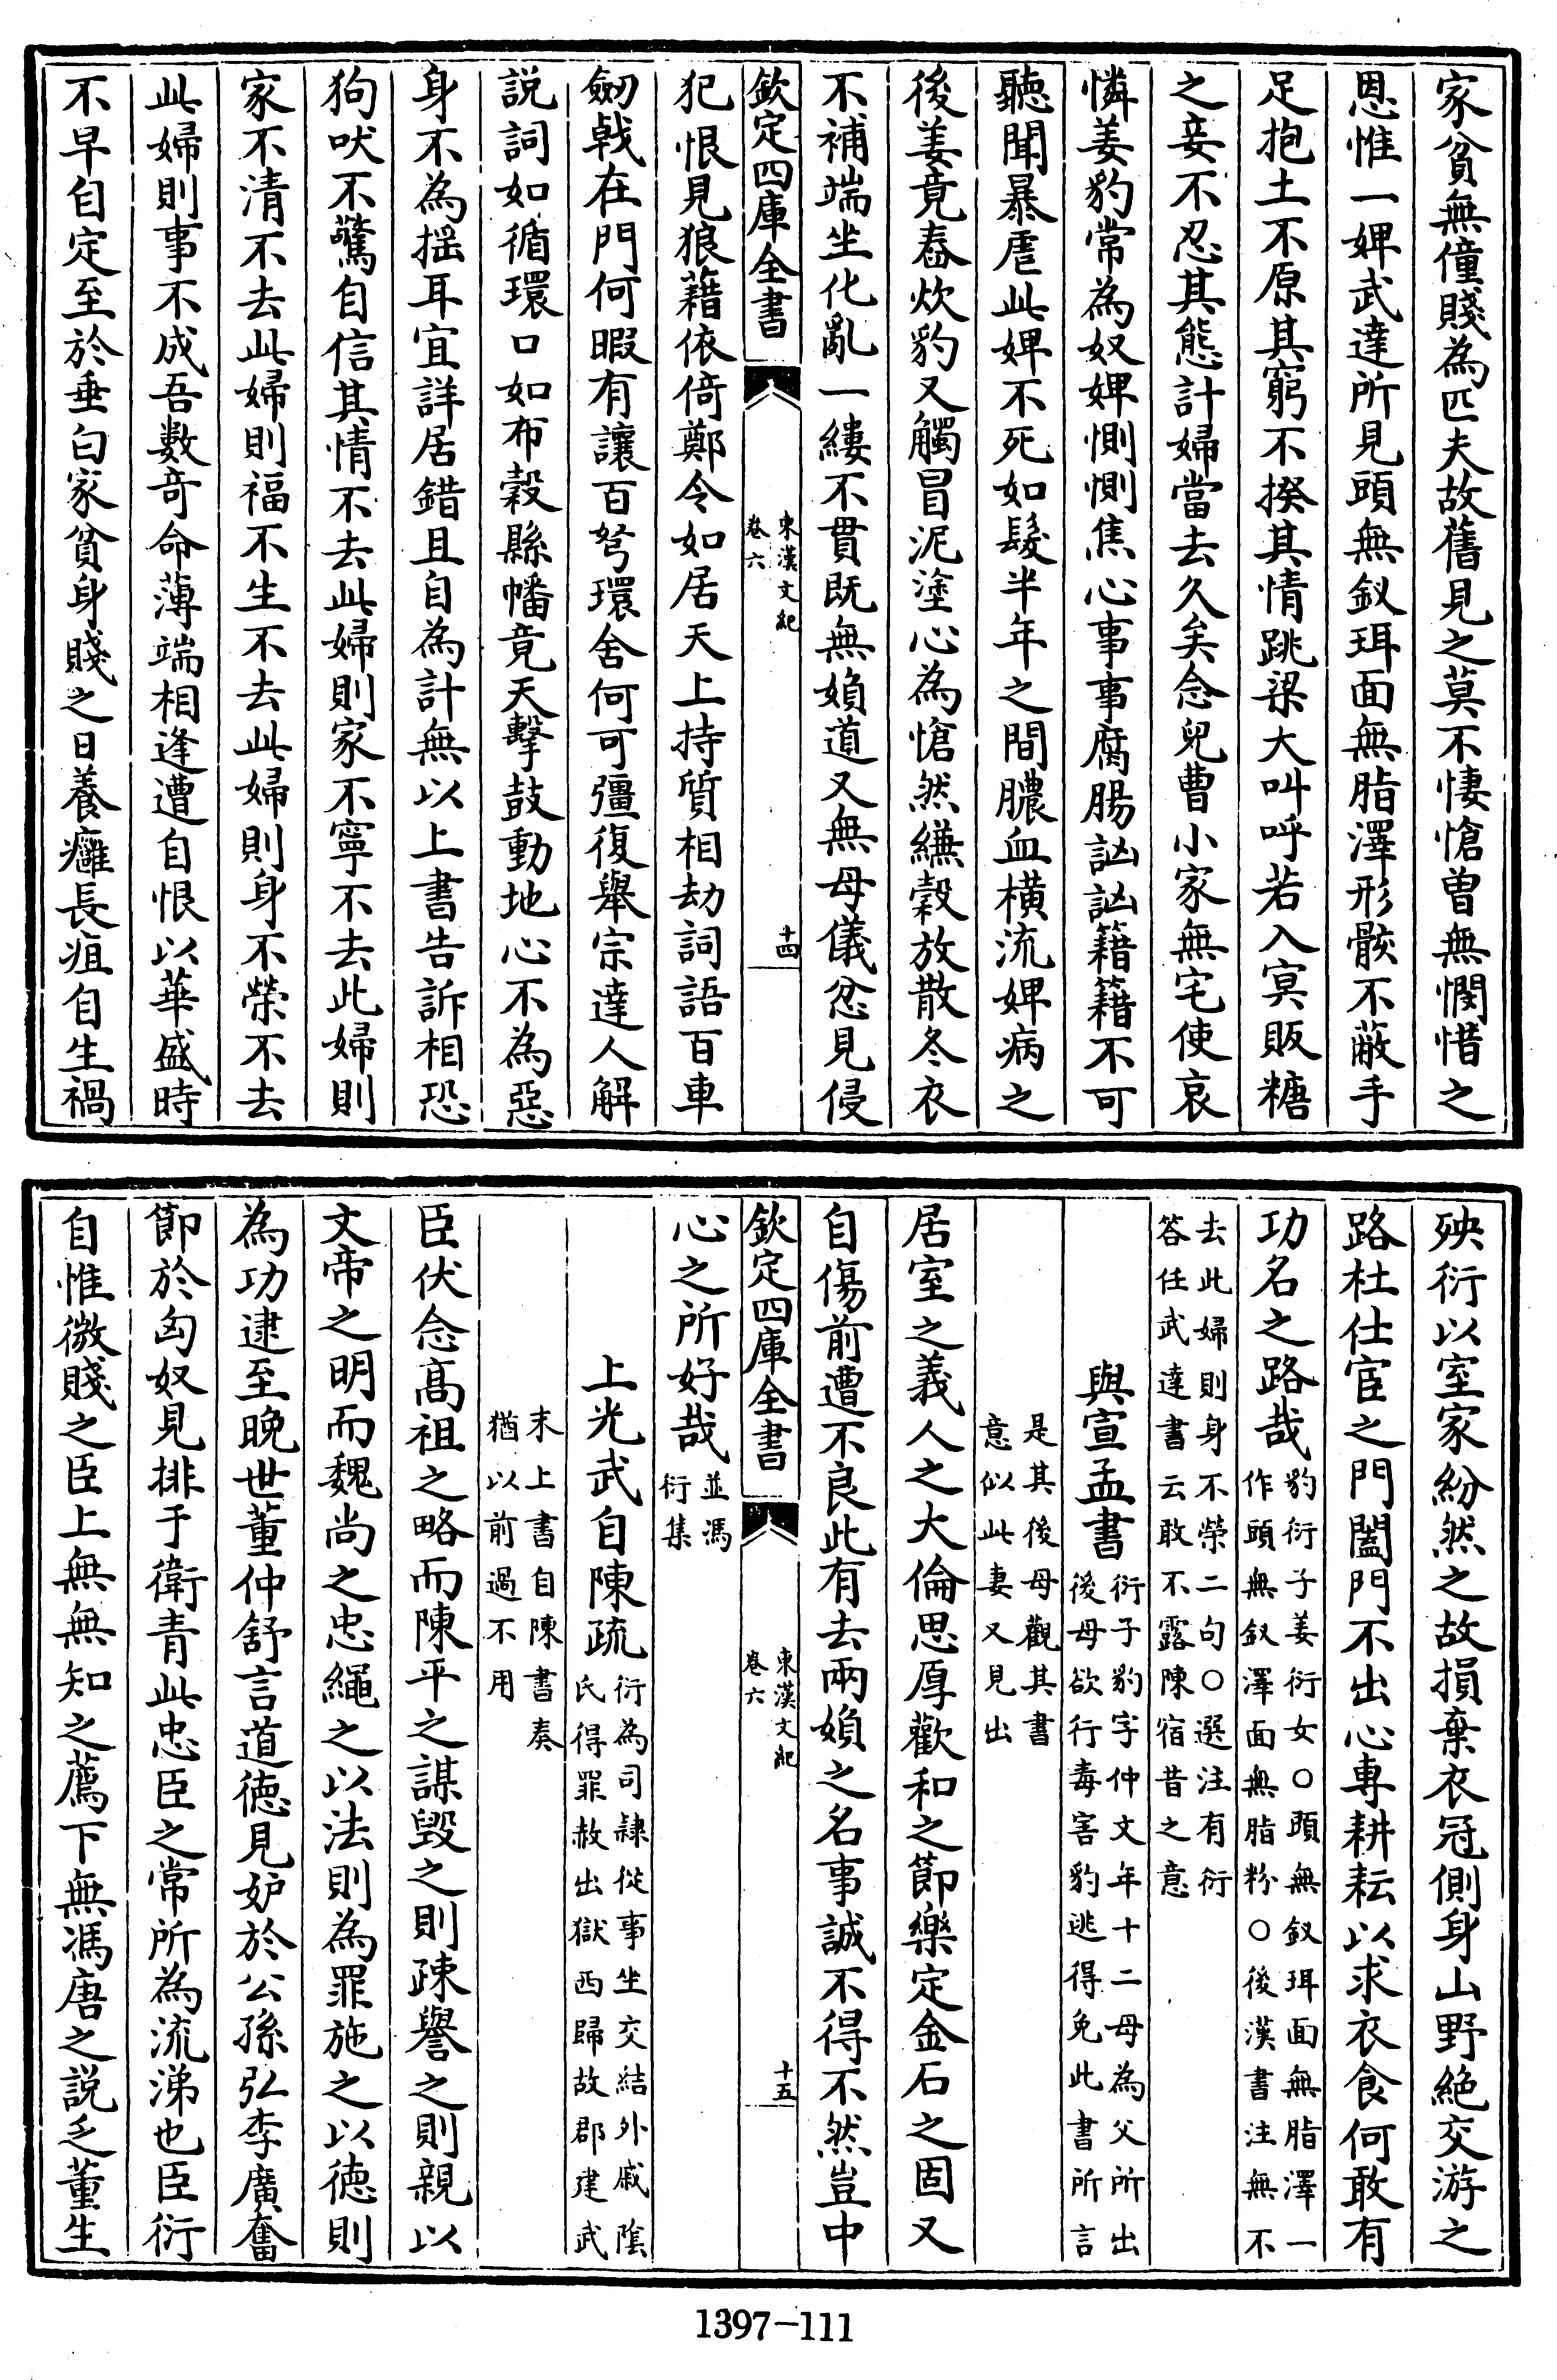 家貧無僮賤為匹夫故舊見之莫不悽愴曽無憫惜之
恩惟一婢武達所見頭無釵珥面無脂澤形骸不蔽手
足抱土不原其窮不揆其情跳梁大叫呼若入冥販糖
之妾不忍其態計婦當去久矣念兒曹小家無宅使哀
憐姜豹常為奴婢惻惻焦心事事腐腸訩訩籍籍不可
聽聞暴虐此婢不死如髮半年之間膿血橫流婢病之
後姜竟舂炊豹又觸冒泥塗心為愴然縑縠放散冬衣
不補端坐化亂一縷不貫既無婦道又無母儀忿見侵
欽定四庫全書
東漢文紀
卷六
十四
犯恨見狼藉依倚鄭令如居天上持質相劫詞語百車
劒戟在門何暇有讓百弩環舍何可彊復舉宗達人解
說詞如循環口如布穀縣幡竟天擊鼓動地心不為惡
身不為搖耳宜詳居錯且自為計無以上書告訴相恐
狗吠不驚自信其情不去此婦則家不寧不去此婦則
家不清不去此婦則福不生不去此婦則身不榮不去
此婦則事不成吾數奇命薄端相逢遭自恨以華盛時
不早自定至於垂白家貧身賤之日養癰長疽自生禍
殃衍以室家紛然之故損棄衣冠側身山野絶交游之
路杜仕宦之門闔門不出心專耕耘以求衣食何敢有
功名之路哉豹衍子姜衍女○頭無釵珥面無脂澤一
作頭無釵澤面無脂粉○後漢書注無不
去此婦則身不榮二句○選注有衍
答任武達書云敢不露陳宿昔之意
與宣孟書衍子豹字仲文年十二母為父所出
後母欲行毒害豹逃得免此書所言
是其後母觀其書
意似此妻又見出
居室之義人之大倫思厚歡和之節樂定金石之固又
自傷前遭不良此有去兩婦之名事誠不得不然豈中
欽定四庫全書
東漢文紀
卷六
十五
心之所好哉並馮
衍集
上光武自陳疏衍為司隷從事坐交結外戚陰
氏得罪赦出獄西歸故郡建武
末上書自陳書奏
猶以前過不用
臣伏念髙祖之略而陳平之謀毀之則疎譽之則親以
文帝之明而魏尚之忠繩之以法則為罪施之以德則
為功逮至晚世董仲舒言道德見妒於公孫弘李廣奮
節於匈奴見排于衛青此忠臣之常所為流涕也臣衍
自惟微賤之臣上無無知之薦下無馮唐之說乏董生
1397-111